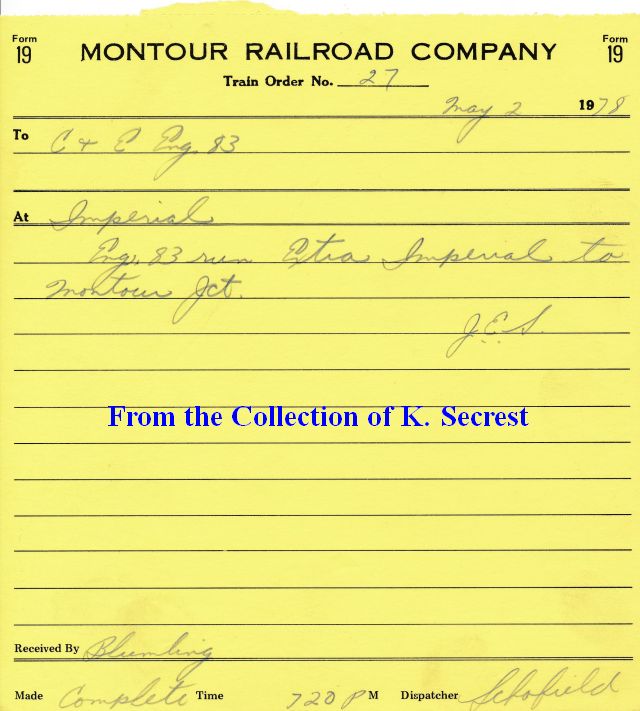 Form 19 MONTOUR RAILROAD COMPANY Form 19
Train Order No. 27
May 2 1978
To C & E Eng. 83
At Imperial
Eng. 83 run Extra Imperial to
Montour Jct.
J.E.S.
From the Collection of K. Secrest
Received By Blumling
Made Complete Time 720 P M Dispatcher Schofield